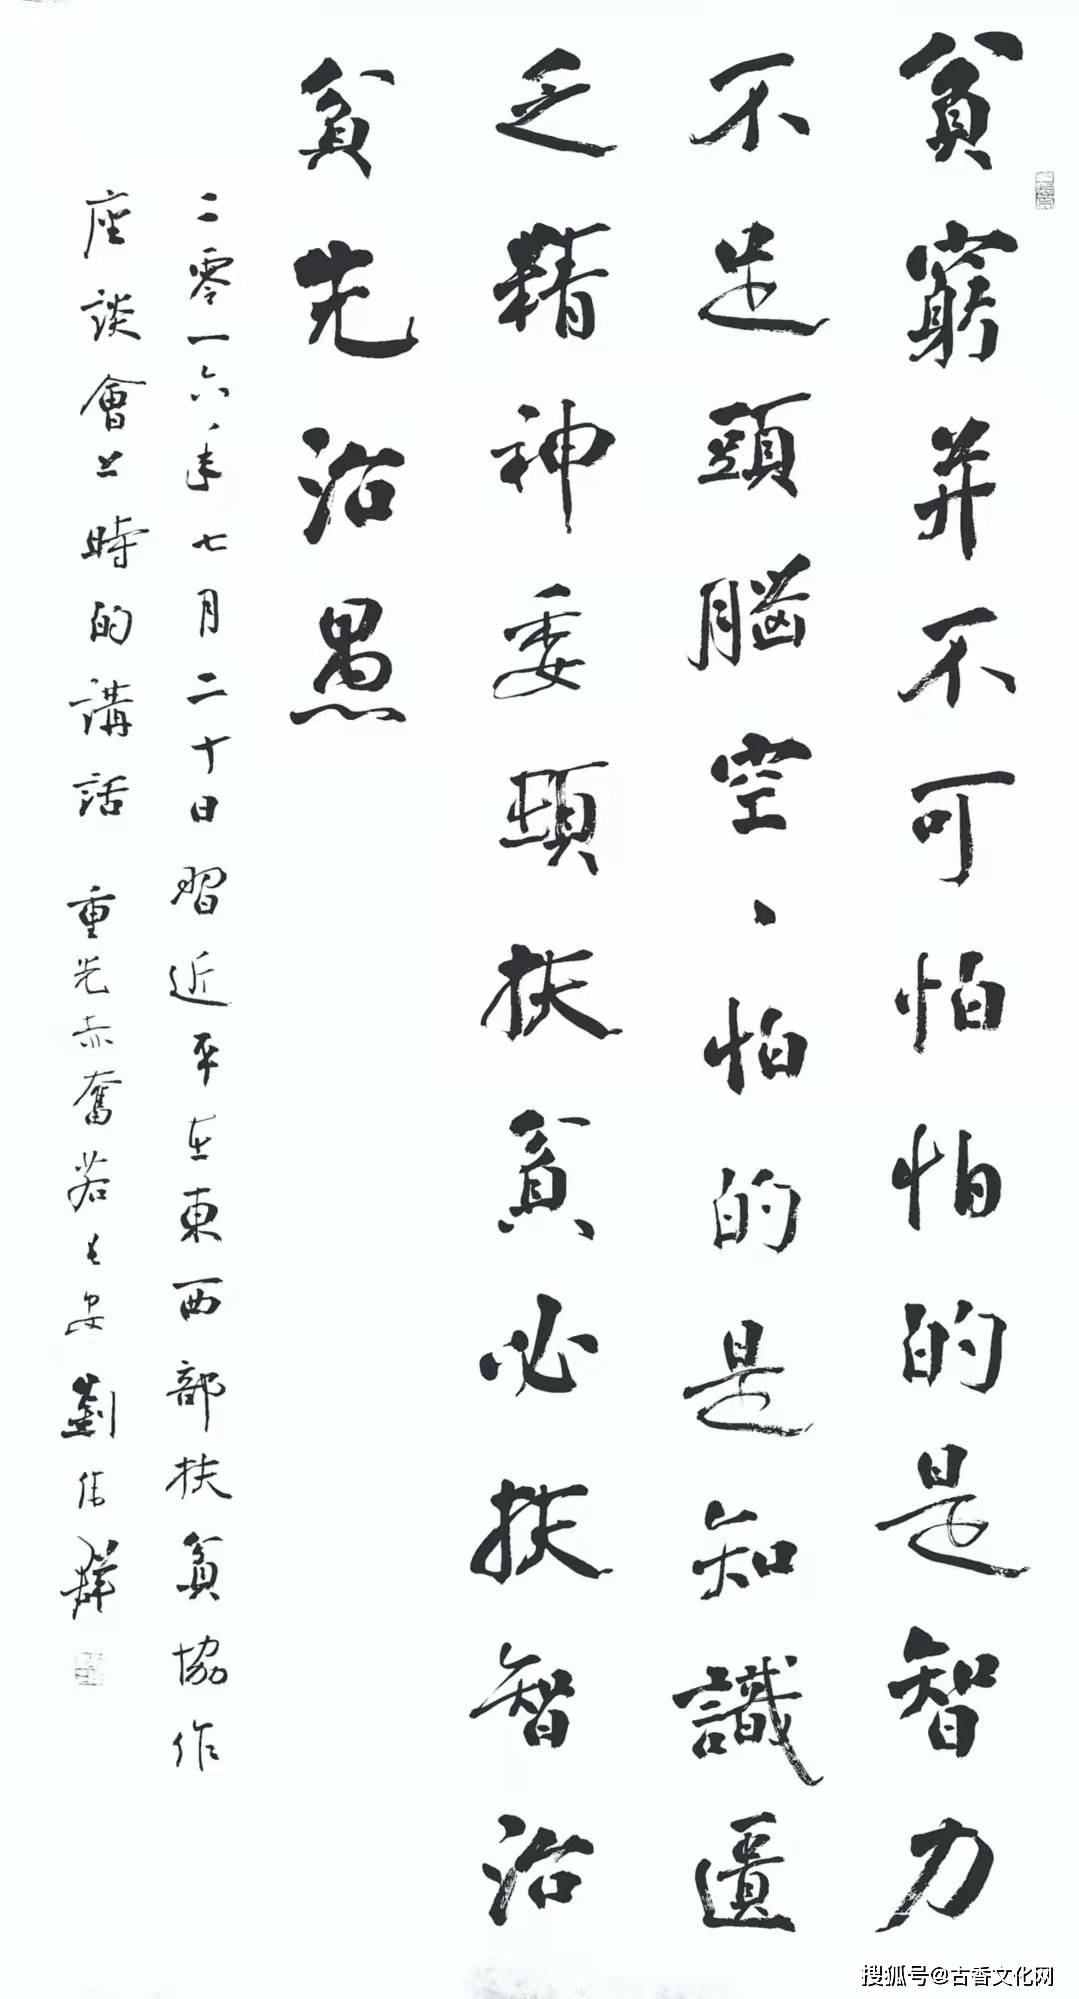 貧窮并不可怕怕的是智力
不足頭腦空、、怕的是知識匱
乏精神委頓扶貧必扶智治
貧先治愚
二零一六年七月二十日習近平在東西部扶貧協作
座談會上時的講話 重光赤奮若长安 劉偉群
搜狐号@古香文化网